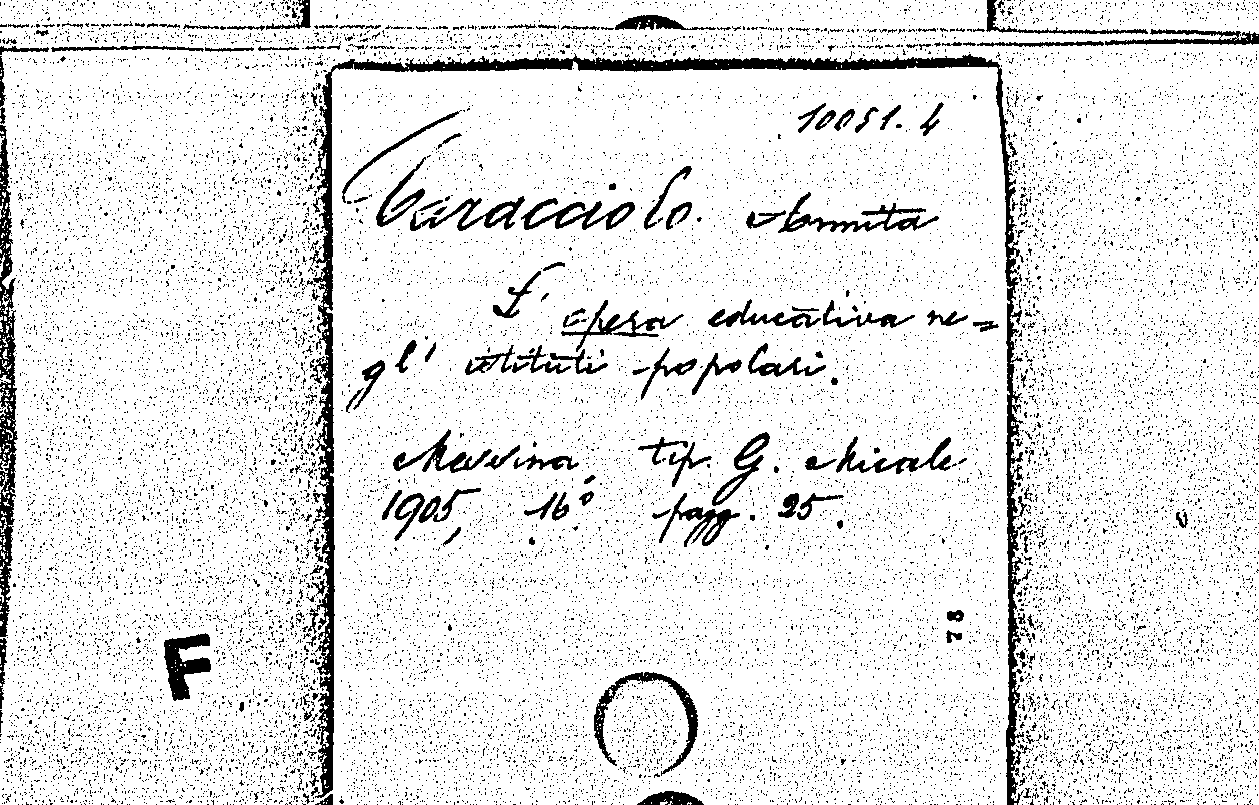 10051. 4
Caracciolo. Annita
L' opera educativa ne=
gl' istituti popolari.
Messina, tip. G. Nicale
1905, 16° pagg. 25.
78
F